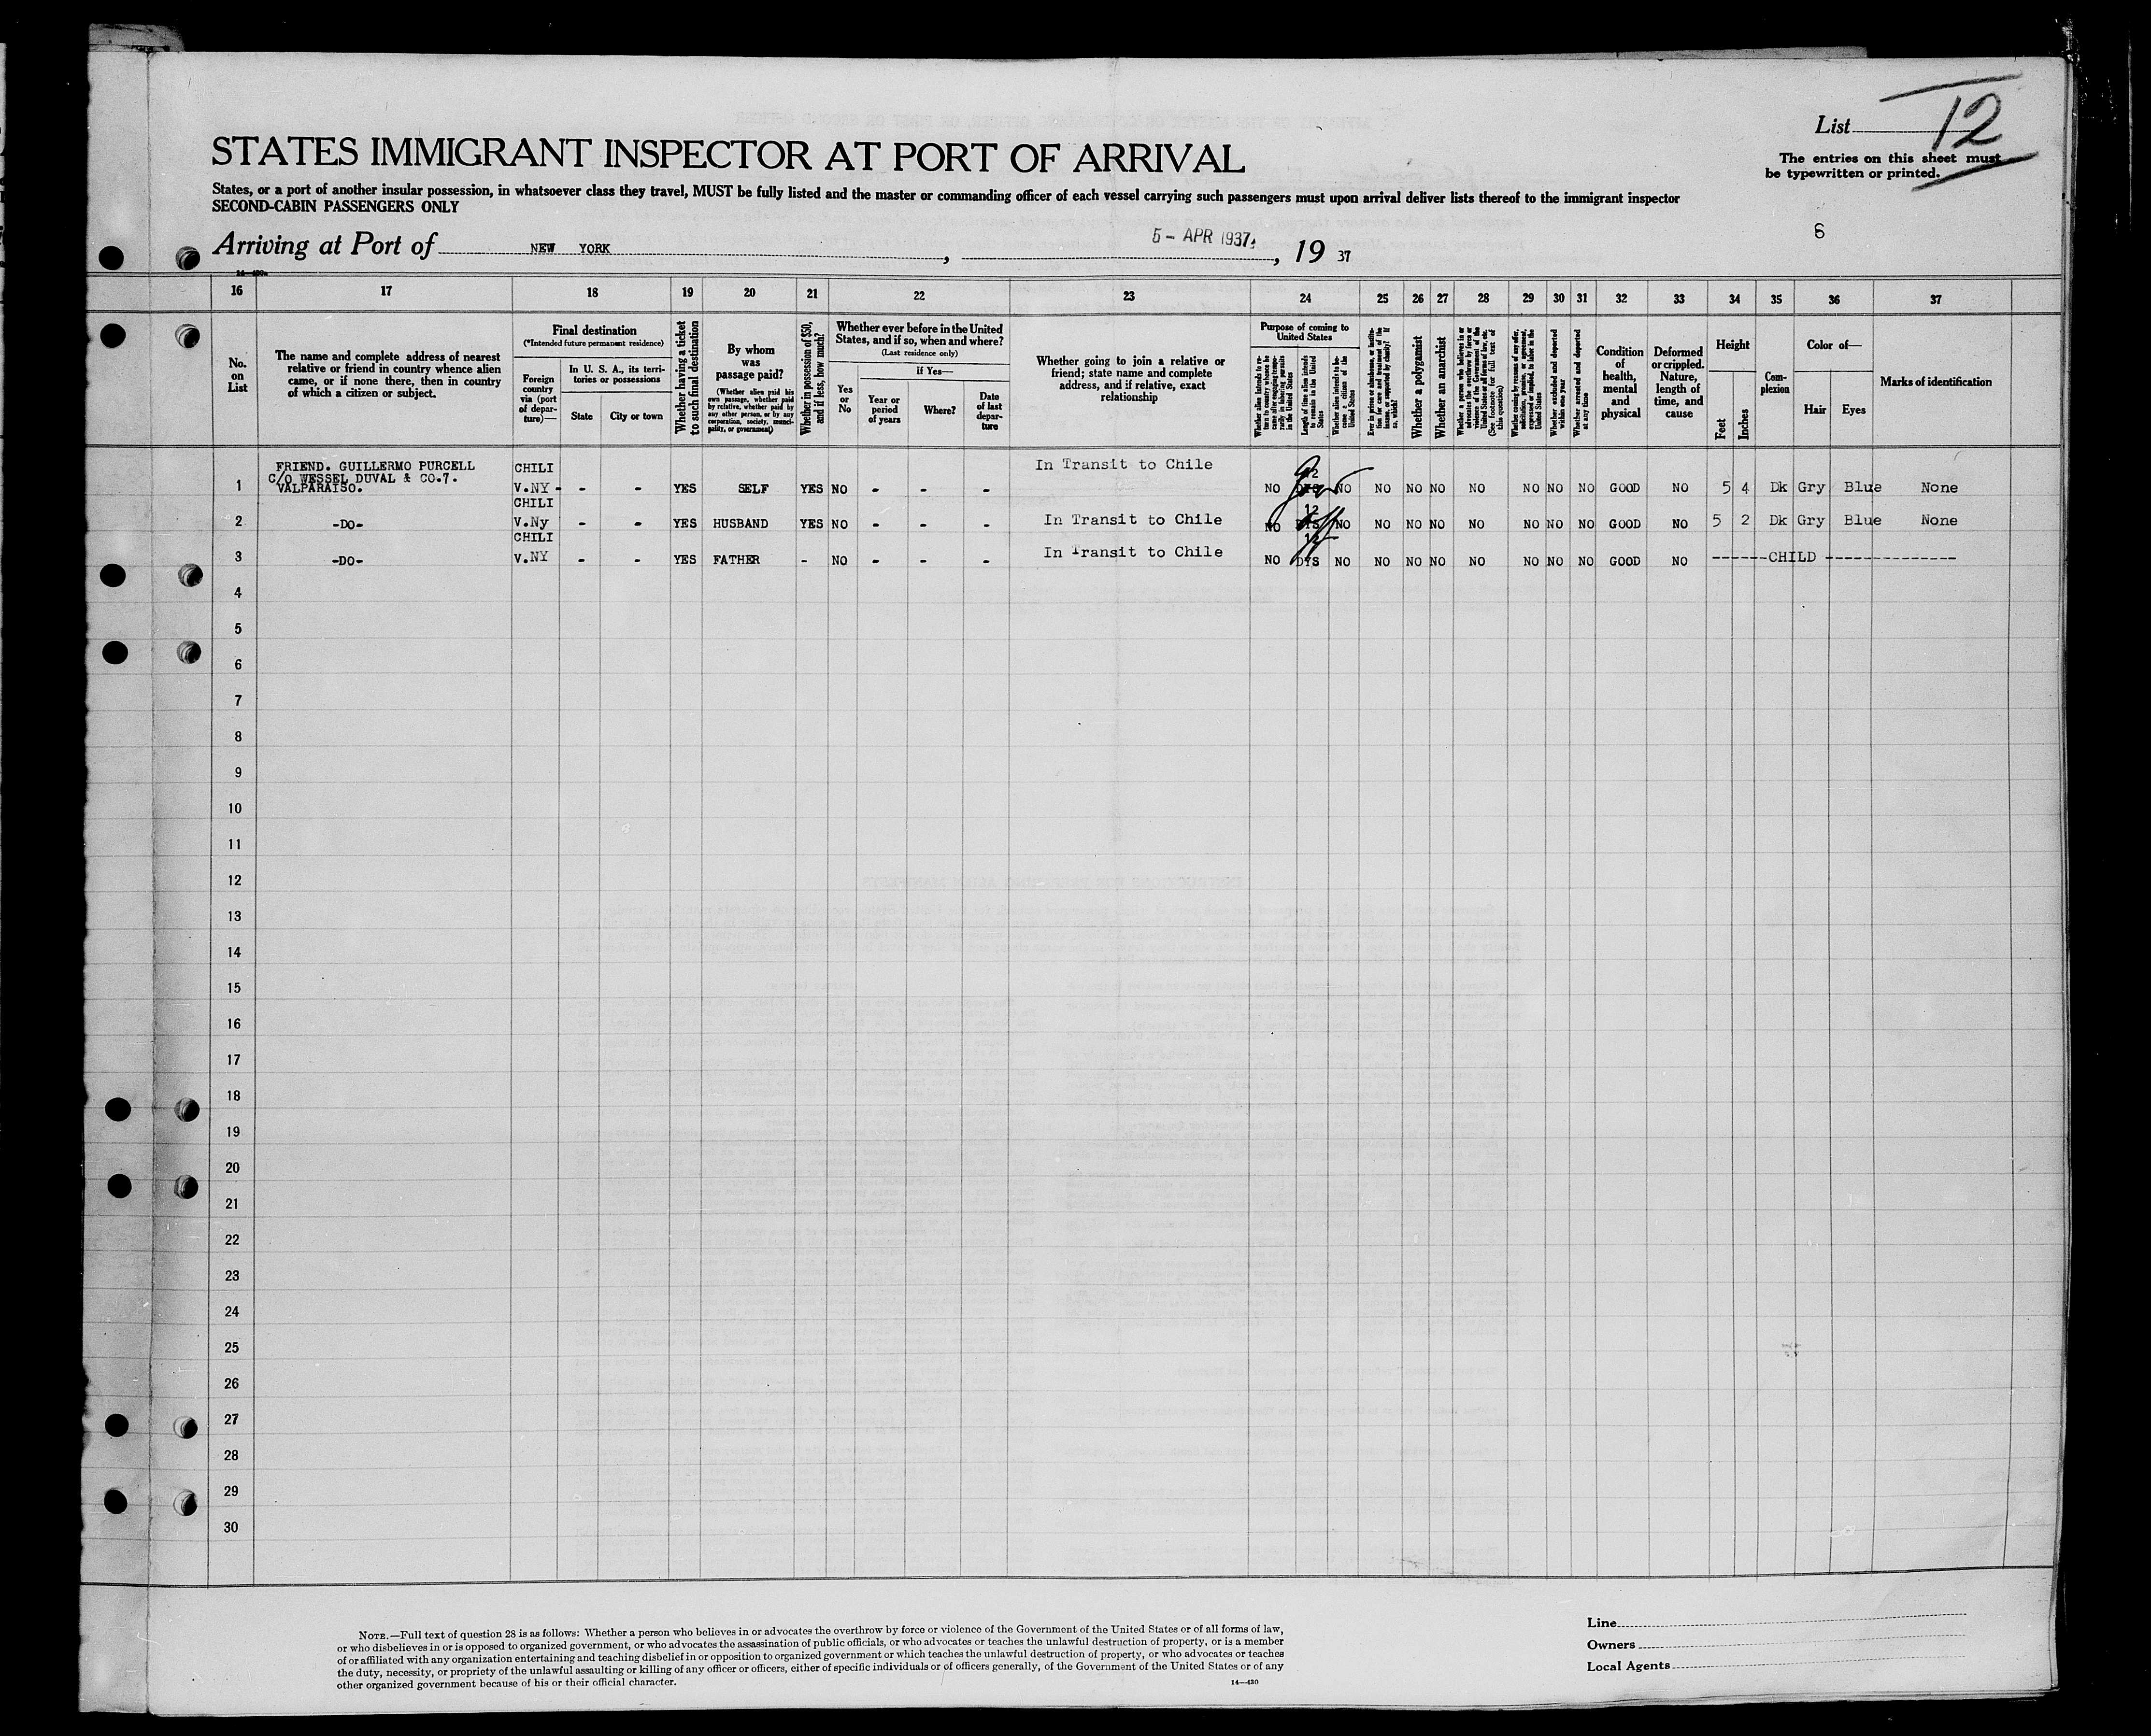 List 12
The entries on this sheet must
be typewritten or printed.
STATES IMMIGRANT INSPECTOR AT PORT OF ARRIVAL
States, or a port of another insular possession, in whatsoever class they travel, MUST be fully listed and the master or commanding officer of each vessel carrying such passengers must upon arrival deliver lists thereof to the immigrant inspector
SECOND-CABIN PASSENGERS ONLY
6
Arriving at Port of NEW YORK, 5 - APR 1937, 19 37
14-430
16 17 18 19 20 21 22 23 24 25 26 27 28 29 30 31 32 33 34 35 36 37
No.
on
List
The name and complete address of nearest
relative or friend in country whence alien
came, or if none there, then in country
of which a citizen or subject.
Final destination
(*Intended future permanent residence)
Foreign
country
via (port
of depar-
ture)—
In U. S. A., its terri-
tories or possessions
State
City or town
Whether having a ticket
to such final destination
By whom
was
passage paid?
(Whether alien paid his
own passage, whether paid
by relative, whether paid by
any other person, or by any
corporation, society, munici-
pality, or government)
Whether in possession of $50,
and if less, how much?
Whether ever before in the United
States, and if so, when and where?
(Last residence only)
Yes
or
No
If Yes—
Year or
period
of years
Where?
Date
of last
depar-
ture
Whether going to join a relative or
friend; state name and complete
address, and if relative, exact
relationship
Purpose of coming to
United States
Whether alien intends to re-
turn to country whence he
came after engaging tempo-
rarily in laboring pursuits
in the United States
Length of time alien intends
to remain in the United
States
Whether alien intends to be-
come a citizen of the
United States
Ever in prison or almshouse, or institu-
tion for care and treatment of the
insane, or supported by charity? If
so, which?
Whether a polygamist
Whether an anarchist
Whether a person who believes in or
advocates the overthrow by force or
violence of the Government of the
United States or all forms of law, etc.
(See footnote for full text of
this question)
Whether coming by reason of any offer,
solicitation, promise, or agreement,
expressed or implied, to labor in the
United States
Whether excluded and deported
within one year
Whether arrested and deported
at any time
Condition
of
health,
mental
and
physical
Deformed
or crippled.
Nature,
length of
time, and
cause
Height
Feet
Inches
Com-
plexion
Color of—
Hair
Eyes
Marks of identification
FRIEND. GUILLERMO PURCELL CHILI In Transit to Chile
C/O WESSEL DUVAL & CO.7.
1 VALPARAISO. V.NY - - - YES SELF YES NO - - - NO NO NO NO NO NO NO NO NO GOOD NO 5 4 Dk Gry Blue None
CHILI
2 -DO- V.Ny - - YES HUSBAND YES NO - - - In Transit to Chile NO 12 DYS NO NO NO NO NO NO NO NO GOOD NO 5 2 Dk Gry Blue None
CHILI
3 -DO- V.NY - - YES FATHER - NO - - - In Transit to Chile NO 12 DYS NO NO NO NO NO NO NO NO GOOD NO ------CHILD --------------
4
5
6
7
8
9
10
11
12
13
14
15
16
17
18
19
20
21
22
23
24
25
26
27
28
29
30
NOTE.—Full text of question 28 is as follows: Whether a person who believes in or advocates the overthrow by force or violence of the Government of the United States or of all forms of law,
or who disbelieves in or is opposed to organized government, or who advocates the assassination of public officials, or who advocates or teaches the unlawful destruction of property, or is a member
of or affiliated with any organization entertaining and teaching disbelief in or opposition to organized government or which teaches the unlawful destruction of property, or who advocates or teaches
the duty, necessity, or propriety of the unlawful assaulting or killing of any officer or officers, either of specific individuals or of officers generally, of the Government of the United States or of any
other organized government because of his or their official character.
14—430
Line
Owners
Local Agents